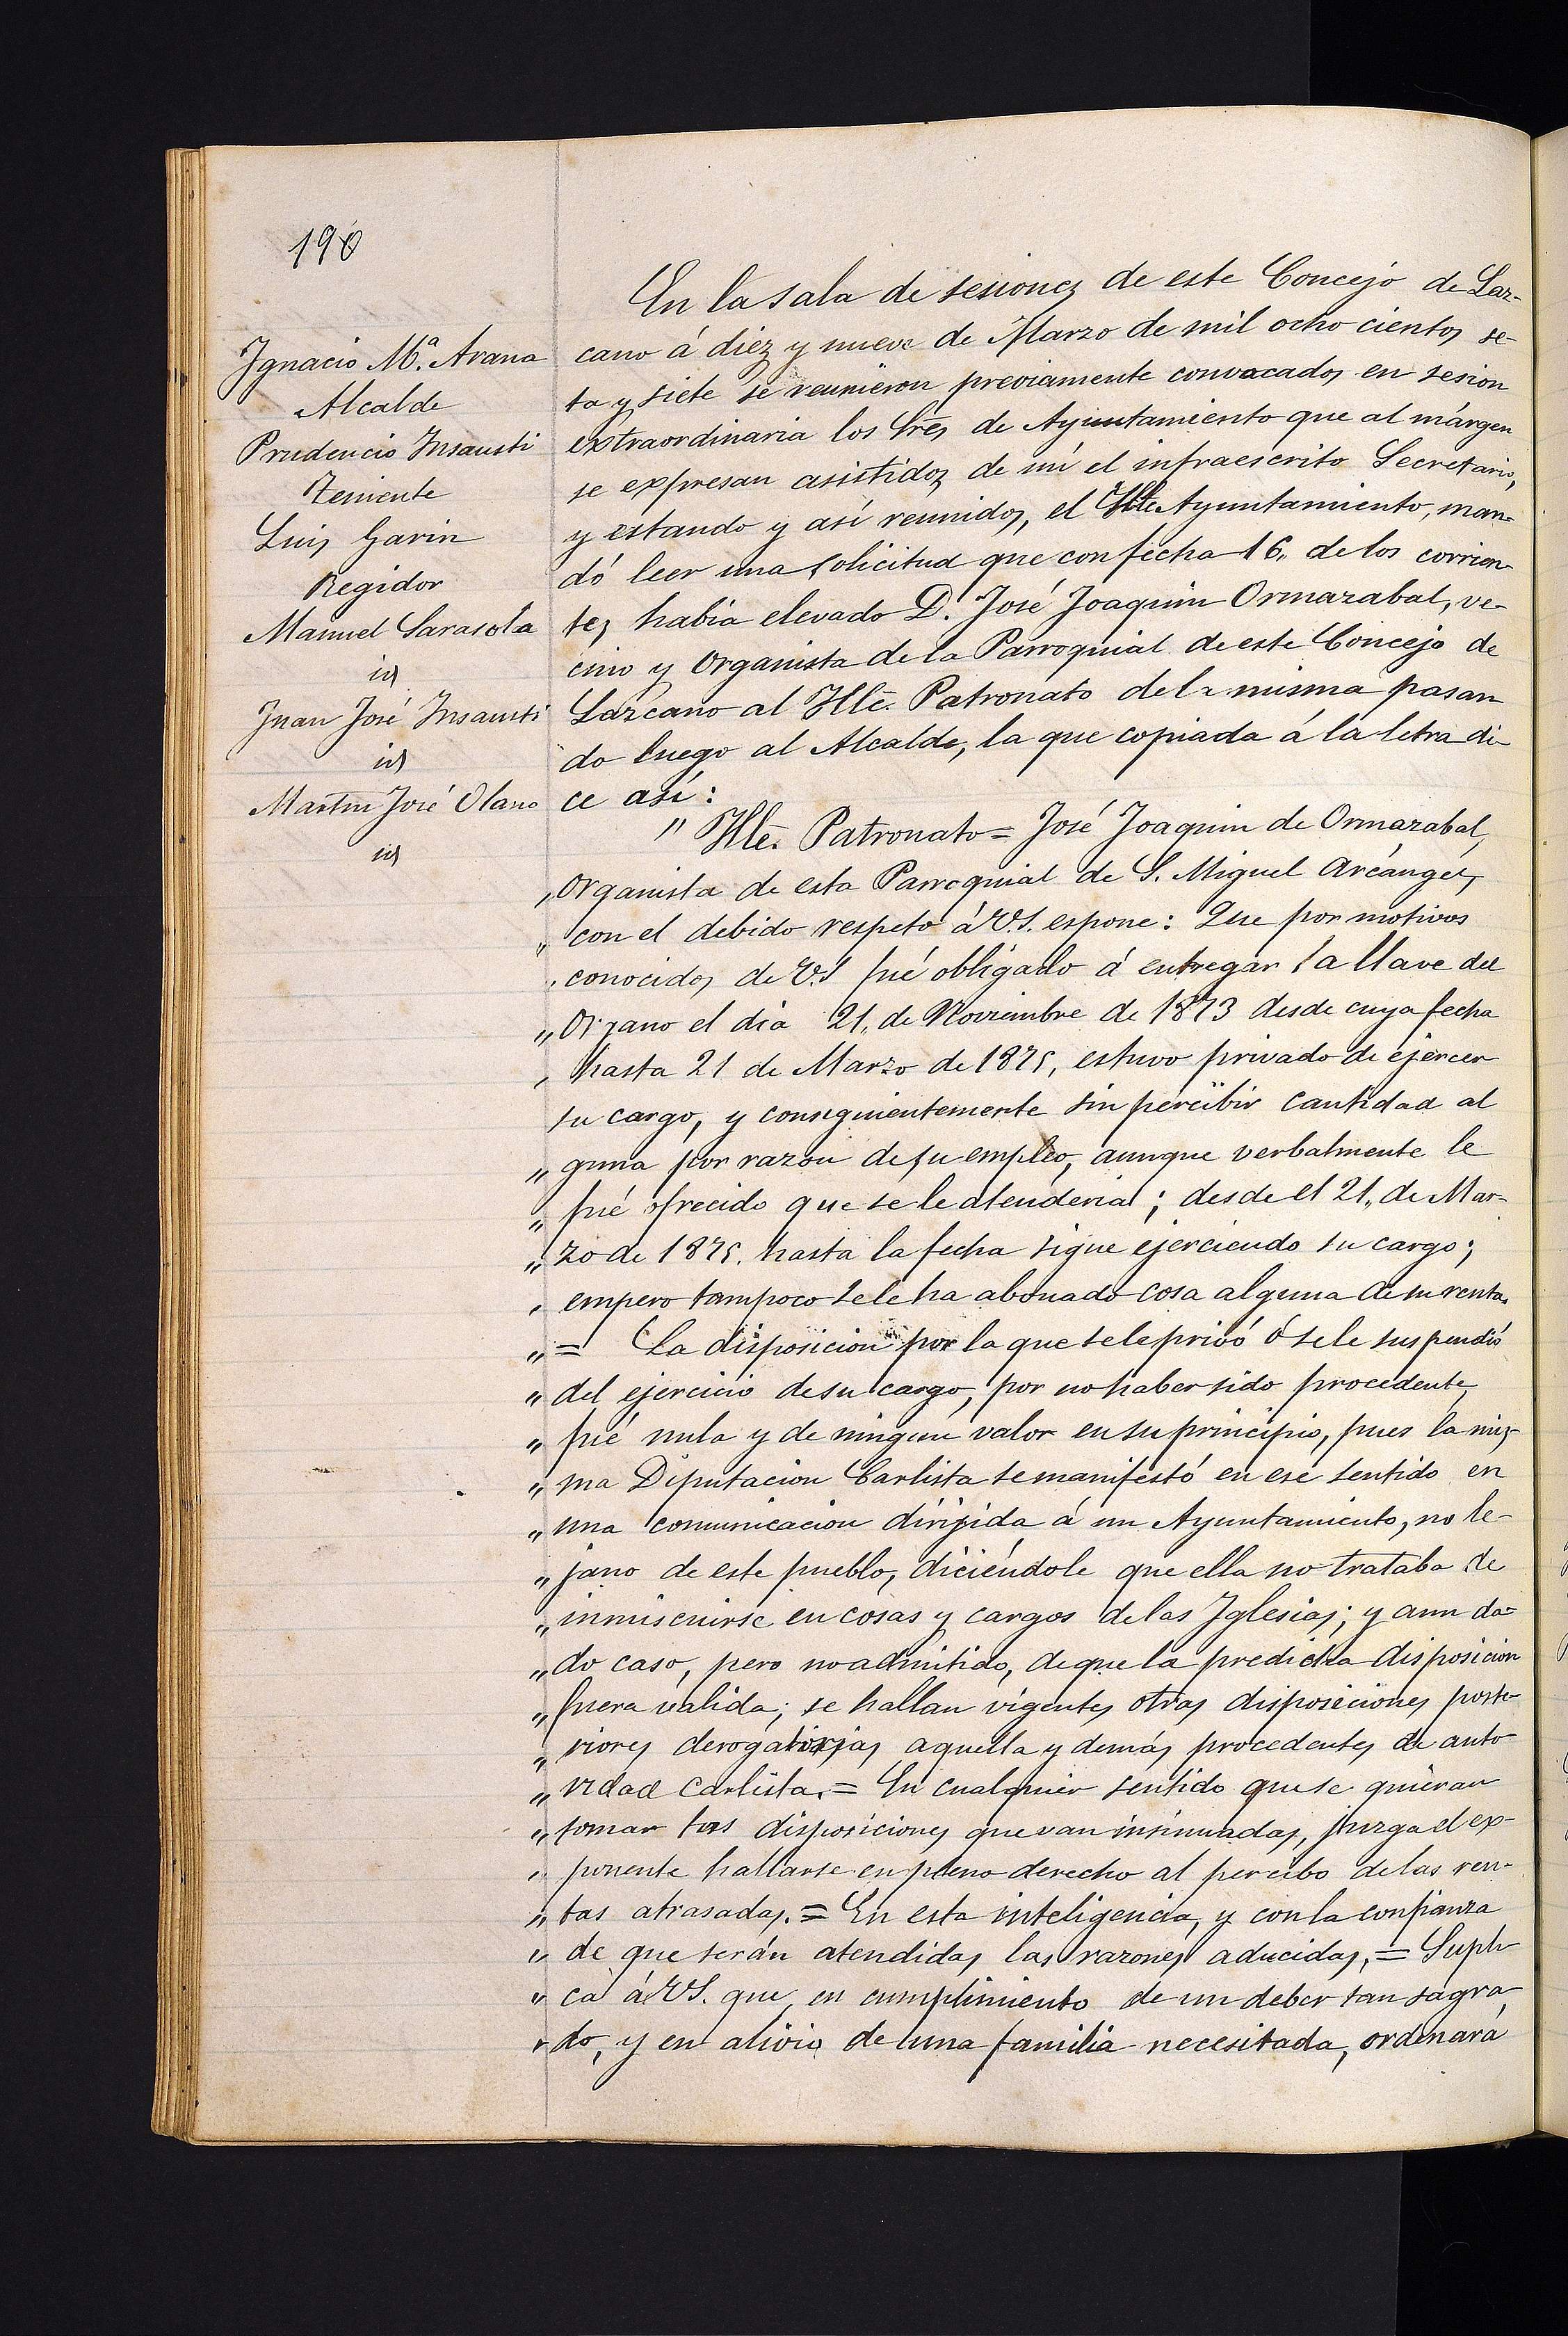 190
Ignacio M.ª Arana
Alcalde
Prudencio Insausti
Teniente
Luis Garin
Regidor
Manuel Sarasola
id
Juan José Insausti
id
Martin José Olano
id
En la sala de sesiones de este Concejo de Laz-
cano á diez y nueve de Marzo de mil ocho cientos se-
ta y siete se reunieron previamente convocados en sesion
extraordinaria los Sres de Ayuntamiento que al márgen
se expresan asistidos de mí el infraescrito Secretario,
y estando y así reunidos, el Ille Ayuntamiento, man-
dó leer una solicitud que con fecha 16,, de los corrien-
tes habia elevado D. José Joaquin Ormazabal, ve-
cino y Organista de la Parroquial de este Concejo de
Lazcano al Ille. Patronato de la misma pasan
do luego al Alcalde, la que copiada á la letra di-
ce así:
" Ille. Patronato = José Joaquin de Ormazabal,
, Organista de esta Parroquial de S. Miguel Arcángel,
,, con el debido respeto á V.S. espone: Que por motivos
, conocidos de V.S fué obligado á entregar la llave del
,, Organo el dia 21,, de Noviembre de 1873 desde cuya fecha
, hasta 21 de Marzo de 1875, estuvo privado de ejercer
su cargo, y consiguientemente sin percibir cantidad al
,, guna por razon de su empleo, aunque verbalmente le
,, fué ofrecido que se le atenderia; desde el 21,, de Mar-
,, zo de 1875. hasta la fecha sigue ejerciendo su cargo;
, empero tampoco se le ha abonado cosa alguna de su renta.
,, = La disposicion por la que se le privó ó se le suspendió
,, del ejercicio de su cargo, por no haber sido procedente,
,, fué nula y de ningun valor en su principio, pues la mis-
,, ma Diputacion Carlista se manifestó en ese sentido en
,, una comunicacion dirijida á un Ayuntamiento, no le-
,, jano de este pueblo, diciéndole que ella no trataba de
,, inmiscuirse en cosas y cargos de las Iglesias; y aun da-
,, do caso, pero no admitido, de que la predicha disposicion
,, fuera valida; se hallan vigentes otras disposiciones poste-
,, riores derogatorias aquella y demás procedentes de auto-
,, ridad Carlista. = En cualquier sentido que se quieran
,, tomar las disposiciones que van insinuadas, juzga el ex-
,, ponente hallarse en pleno derecho al percibo de las ren-
,, tas atrasadas. = En esta inteligencia, y con la confianza
,, de que serán atendidas las razones aducidas, = Supli-
,, ca á V.S. que, en cumplimiento de un deber tan sagra-
,, do, y en alivio de una familia necesitada, ordenará